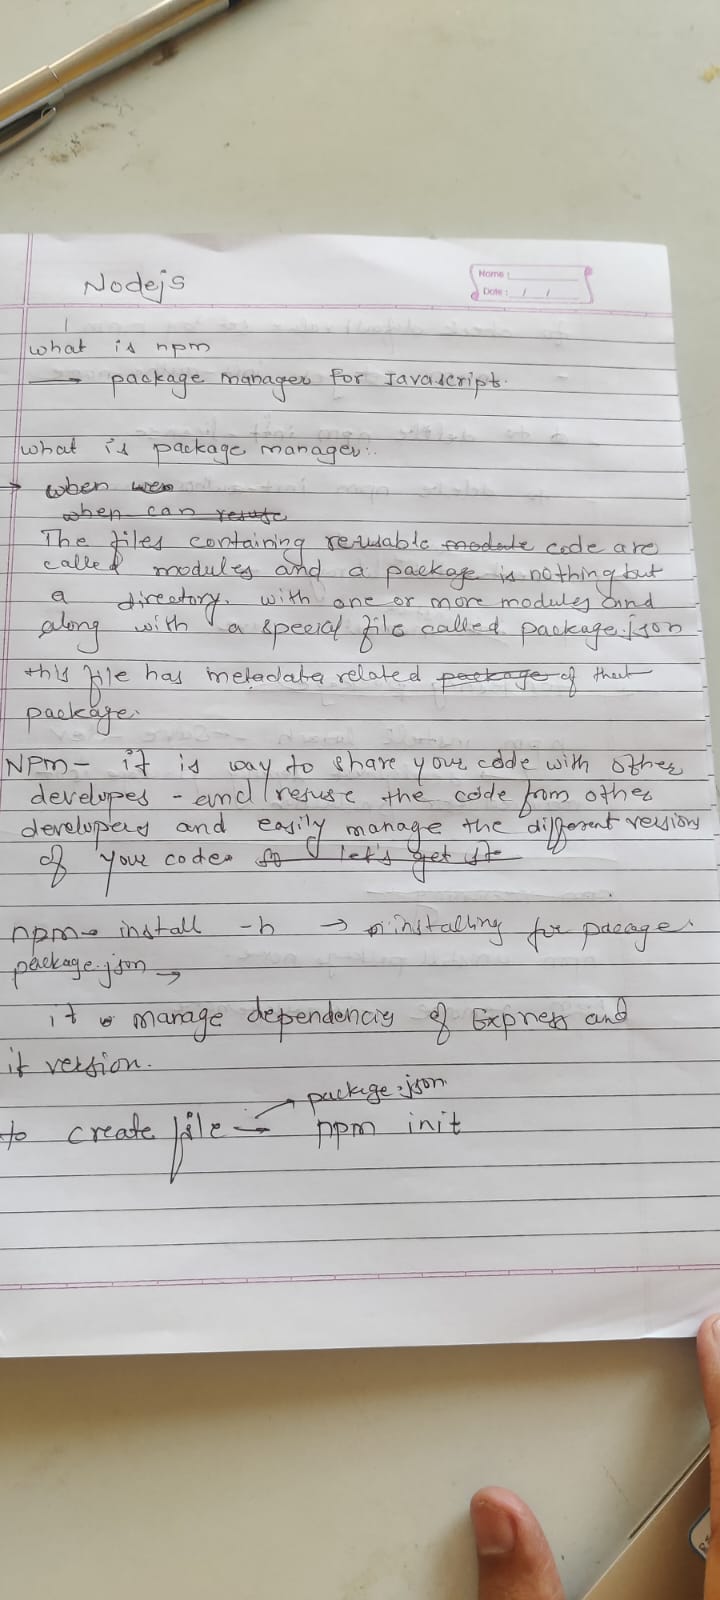 Nodejs
Name :
Date : / /
what is npm
→ package manager for Javascript.
what is package manager:.
→ when wen
when can resuse
The files containing reusable module code are
called modules and a package is nothing but
a directory. with one or more modules and
along with a special file called package.json
this file has metadata related package of that
package.
NPM- it is way to share your code with other
developes - and resuse the code from other
developers and easily manage the different versions
of your code. so let's get st
npm install -h → installing for pacage.
package.json →
it manage dependencis of Express and
it version.
package.json
to create file → npm init